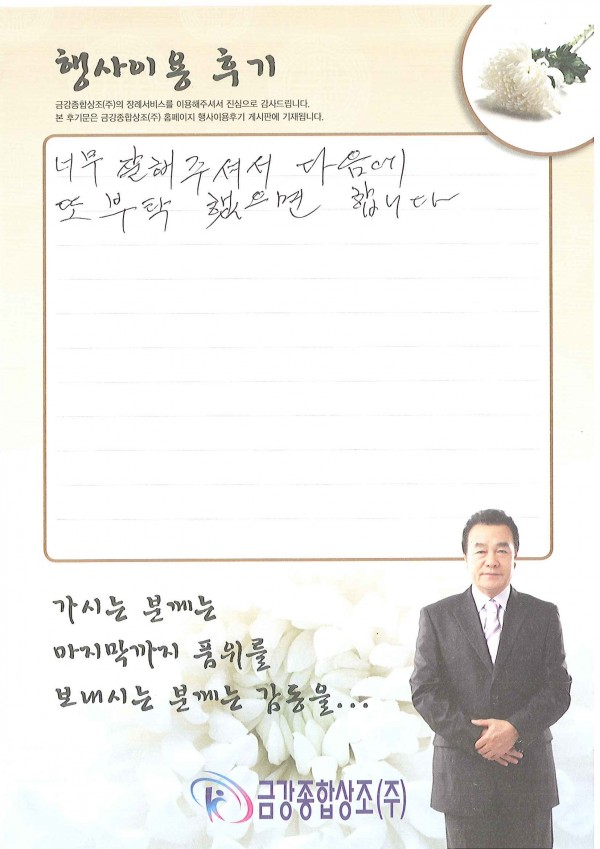 행사이용 후기
금강종합상조(주)의 장례서비스를 이용해주셔서 진심으로 감사드립니다.
본 후기문은 금강종합상조(주) 홈페이지 행사이용후기 게시판에 기재됩니다.
너무 잘해주셔서 다음에
또 부탁 했으면 합니다
가시는 분께는
마지막까지 품위를
보내시는 분께는 감동을...
금강종합상조(주)